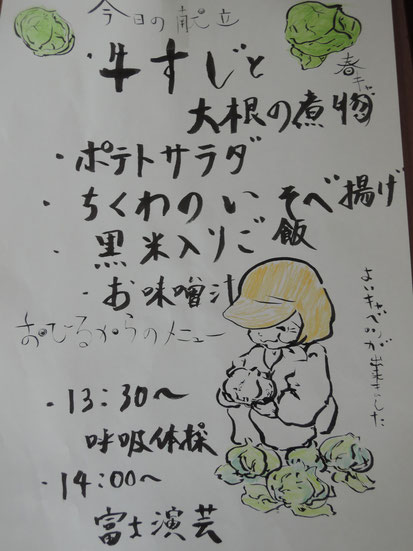 今日の献立
・牛すじと
大根の煮物
・ポテトサラダ
・ちくわのいそべ揚げ
・黒米入りご飯
・お味噌汁
春キャベツ
おひるからのメニュー
・13:30～
呼吸体操
・14:00～
富士演芸
よいキャベツが出来ました